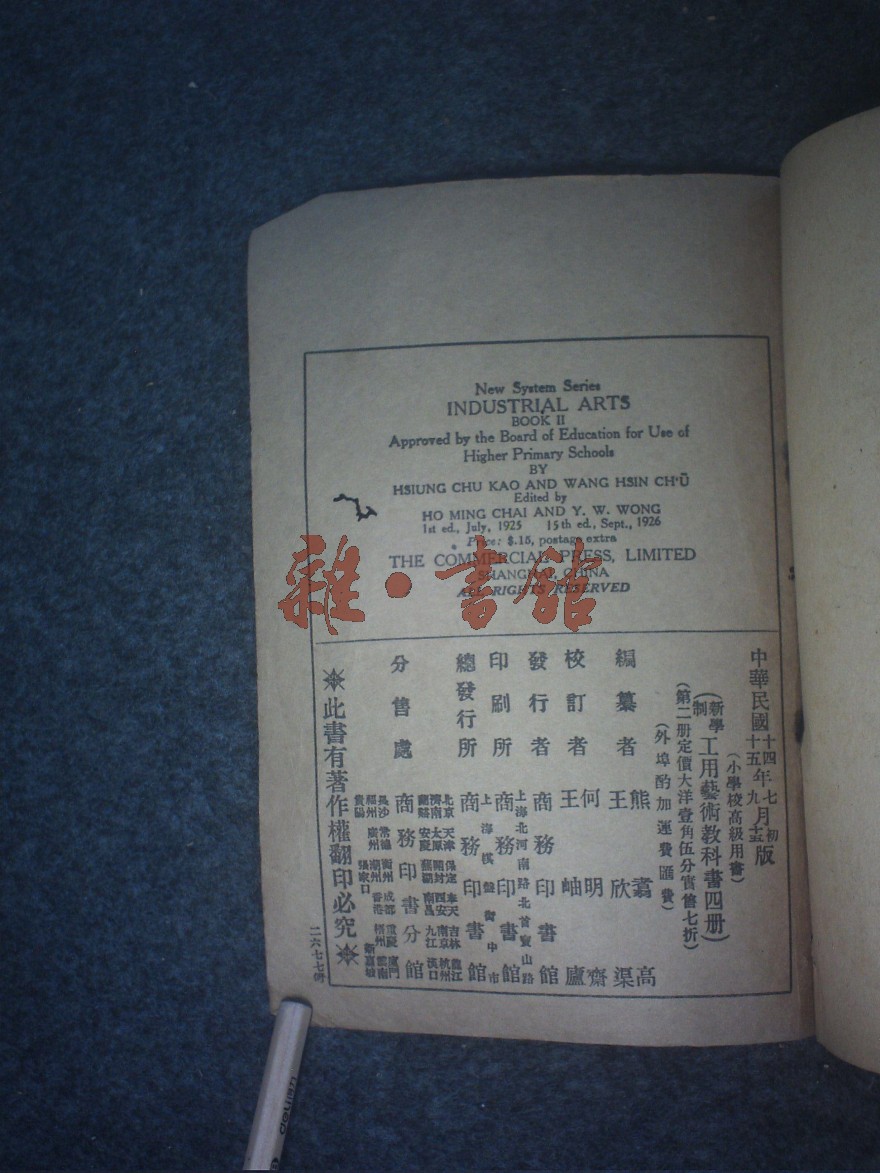 New System Series
INDUSTRIAL ARTS
BOOK II
Approved by the Board of Education for Use of
Higher Primary Schools
BY
HSIUNG CHU KAO AND WANG HSIN CH'Ü
Edited by
HO MING CHAI AND Y. W. WONG
1st ed., July, 1925 15th ed., Sept., 1926
Price: $.15, postage extra
THE COMMERCIAL PRESS, LIMITED
SHANGHAI, CHINA
ALL RIGHTS RESERVED
雜·書館
中華民國十四年七月初版
十五年九月十五版
(小學校高級用書)
(新學制工用藝術教科書四册)
(第二册定價大洋壹角伍分實售七折)
(外埠酌加運費匯費)
編纂者 熊翥高
王欣渠
校訂者 何明齋
王岫廬
發行者 商務印書館
上海北河南路北首寶山路
印刷所 商務印書館
上海棋盤街中市
總發行所 商務印書館
北京 天津 保定 奉天 吉林 龍江
濟南 太原 開封 西安 南京 杭州
安慶 蕪湖 南昌 九江 漢口
分售處 商務印書分館
長沙 常德 衡州 成都 重慶 廈門
福州 廣州 潮州 香港 梧州 雲南
貴陽 張家口 新嘉坡
此書有著作權翻印必究
二六七七
deli